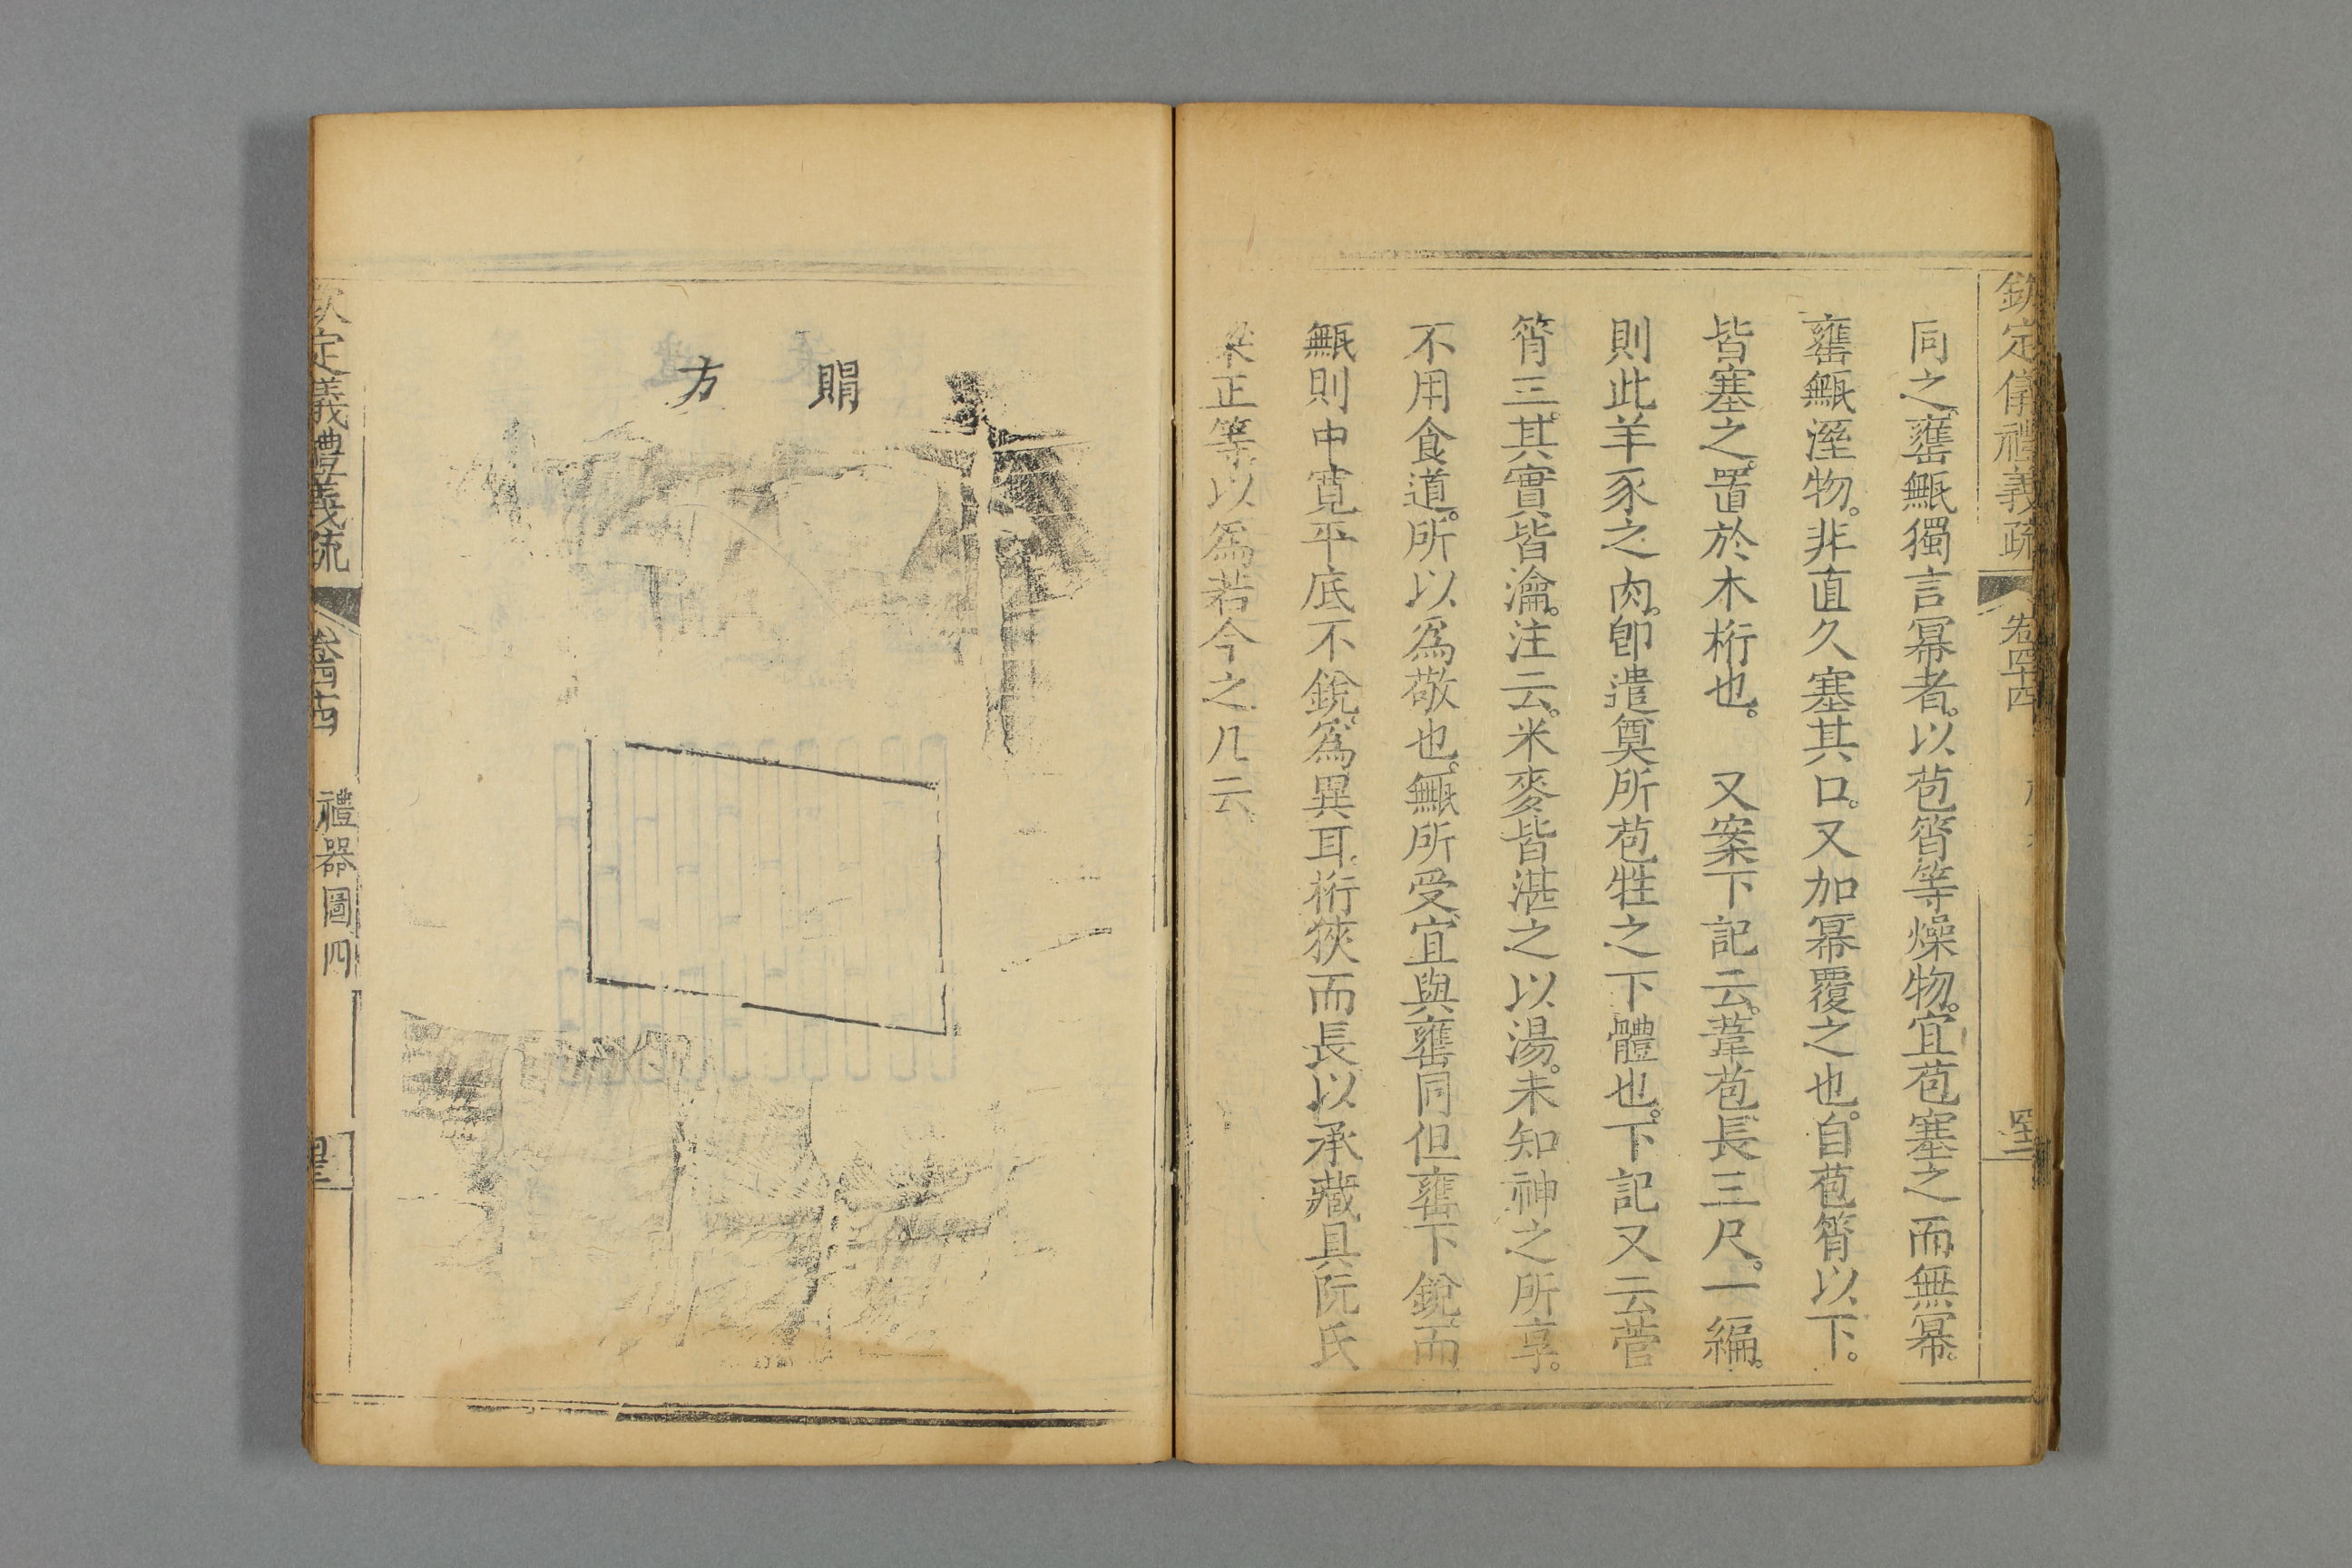 欽定儀禮義疏 卷四十四
同之甕甒獨言冪者。以苞筲等燥物。宜苞塞之而無冪。
甕甒溼物。非直久塞其口。又加冪覆之也。自苞筲以下。
皆塞之。置於木桁也。　又案下記云。葦苞長三尺。一編。
則此羊豕之肉。卽遣奠所苞牲之下體也。下記又云菅
筲三。其實皆瀹。注云。米麥皆湛之以湯。未知神之所享。
不用食道。所以爲敬也。甒所受宜與甕同但甕下銳而
甒則中寬平底不銳爲異耳。桁狹而長以承藏具阮氏
梁正等以爲若今之几云
賵方
欽定義禮義疏 卷四十四 禮器圖四